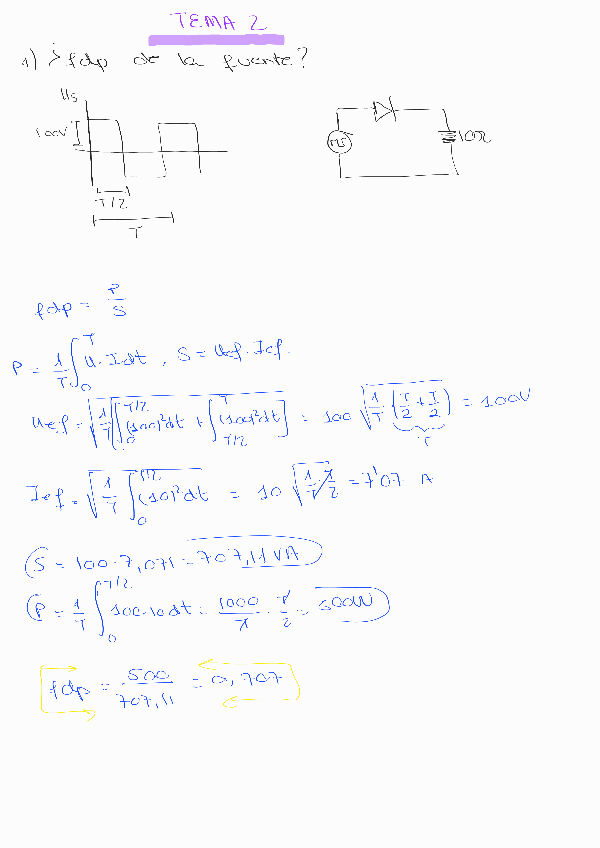 TEMA 2
1) ¿fdp de la fuente?
Us
100V
T/2
T
10Ω
fdp = P/S
P = 1/T ∫₀ᵀ U·I dt, S = Uef·Ief.
Uef = √(1/T [∫₀^(T/2) (100)²dt + ∫_(T/2)^T (100)²dt]) = 100 √(1/T (T/2 + T/2)) = 100V
T
Ief = √(1/T ∫₀^(T/2) (10)²dt) = 10 √(1/T · T/2) = 7'07 A
S = 100·7,071 = 707,11 VA
P = 1/T ∫₀^(T/2) 100·10 dt = 1000/T · T/2 = 500W
fdp = 500/707,11 = 0,707